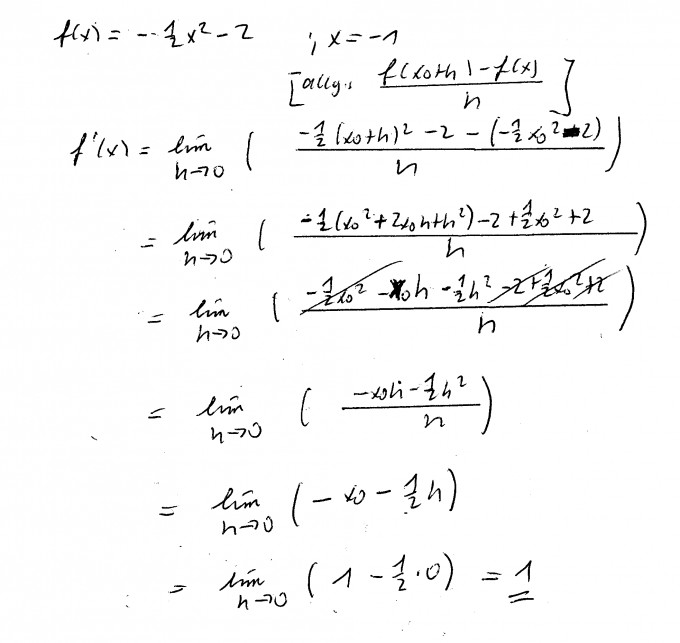 f(x) = -½x² - 2 ; x = -1
[allg.: (f(x₀+h) - f(x))/h]
f'(x) = lim h→0 ( (-½(x₀+h)² - 2 - (-½x₀² - 2))/h )
= lim h→0 ( (-½(x₀² + 2x₀h + h²) - 2 + ½x₀² + 2)/h )
= lim h→0 ( (-½x₀² - x₀h - ½h² - 2 + ½x₀² + 2)/h )
= lim h→0 ( (-x₀h - ½h²)/h )
= lim h→0 ( -x₀ - ½h )
= lim h→0 ( 1 - ½·0 ) = 1